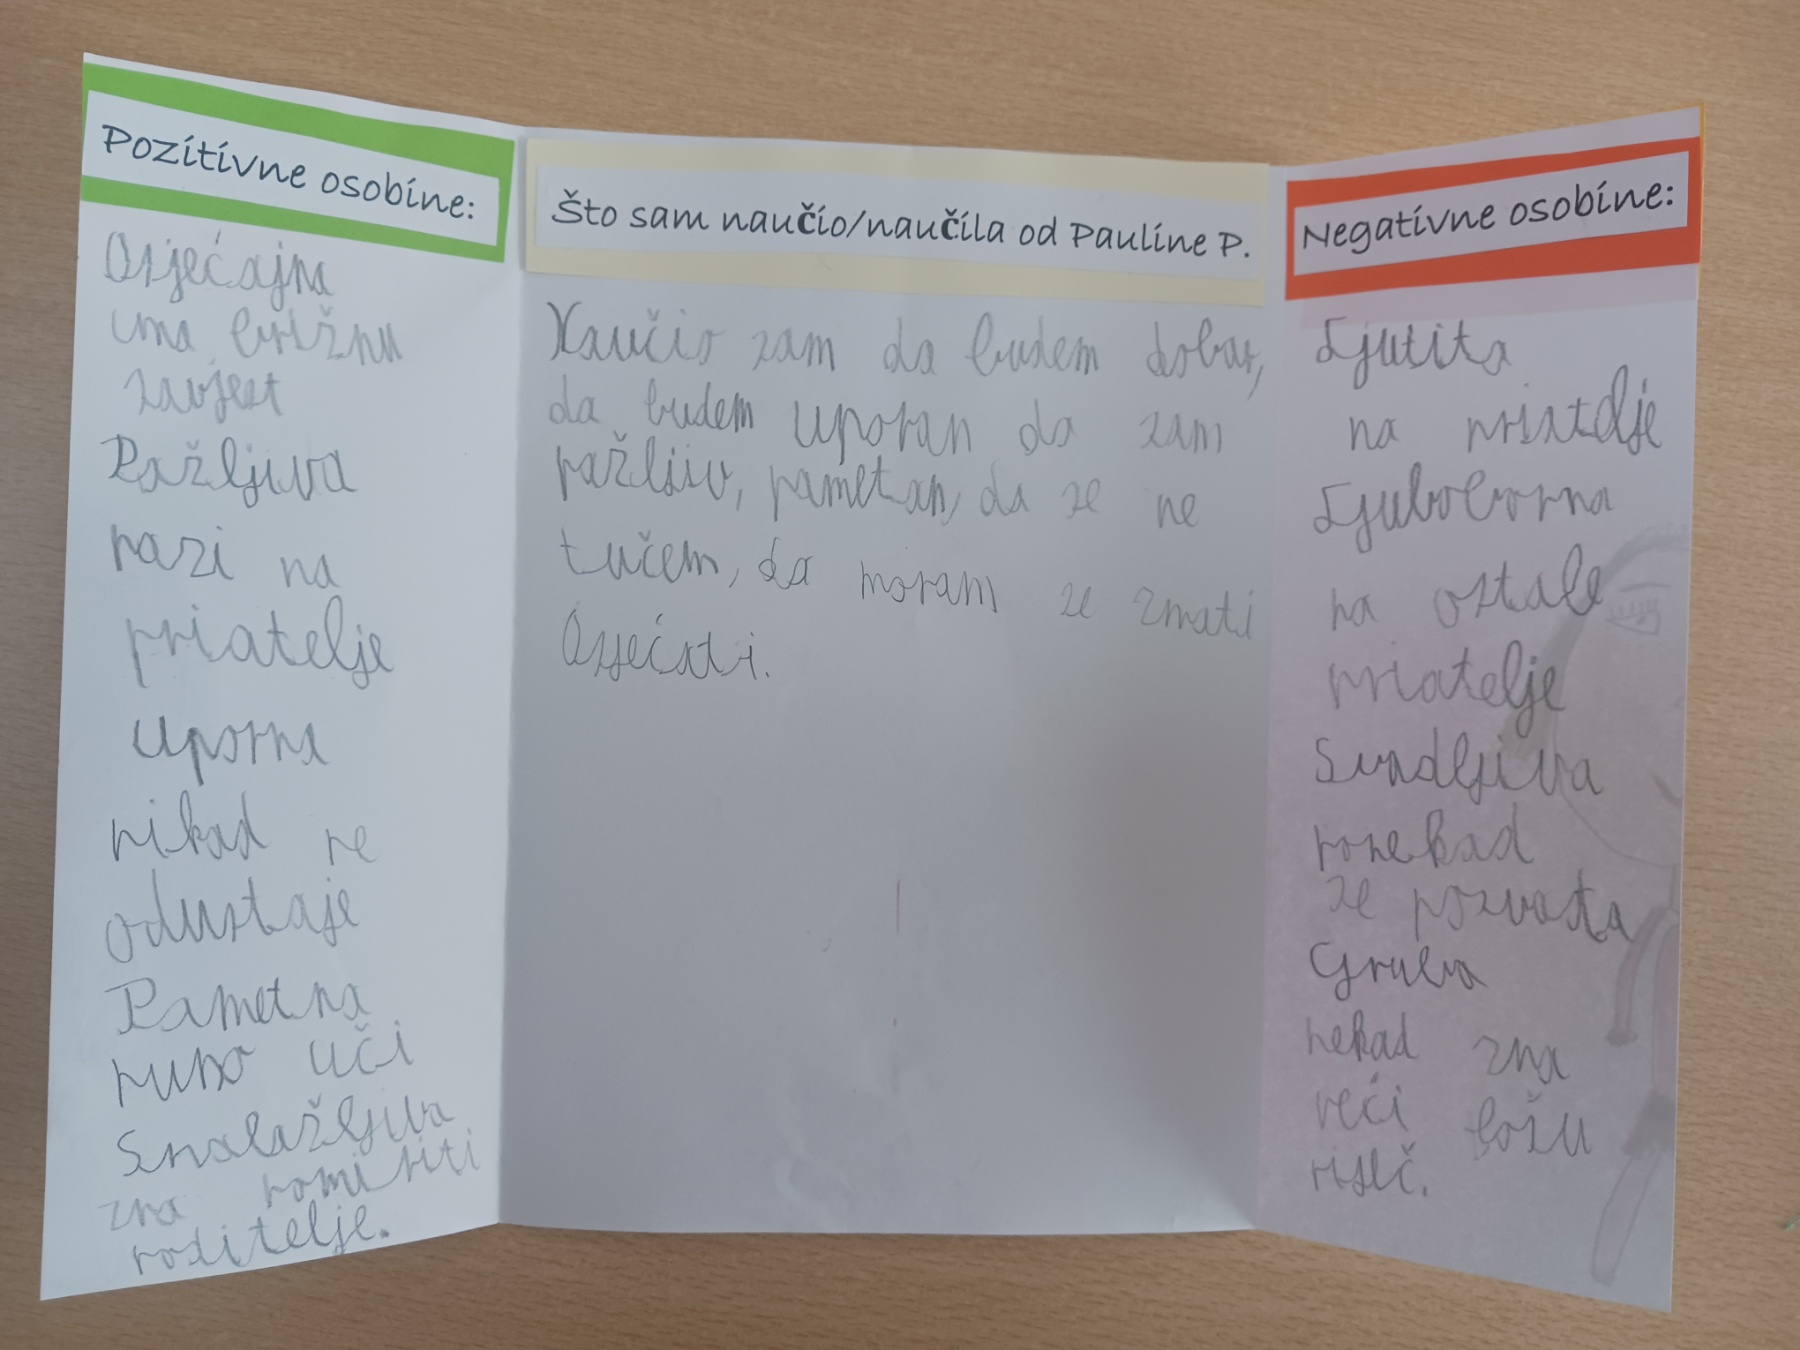 Pozitivne osobine:
Osjećajna
ima brižnu
savjest
Pažljiva
pazi na
priatelje
uporna
nikad ne
odustaje
Pametna
puno uči
Snalažljiva
zna pomiriti
roditelje.
Što sam naučio/naučila od Pauline P.
Naučio sam da budem dobar,
da budem uporan da sam
pažljiv, pametan, da se ne
tučem, da moram se znati
Osjećati.
Negativne osobine:
Ljutita
na priatelje
Ljubomorna
na ostale
priatelje
Svadljiva
ponekad
se posvađa
Gruba
nekad zna
reći ložu
riječ.